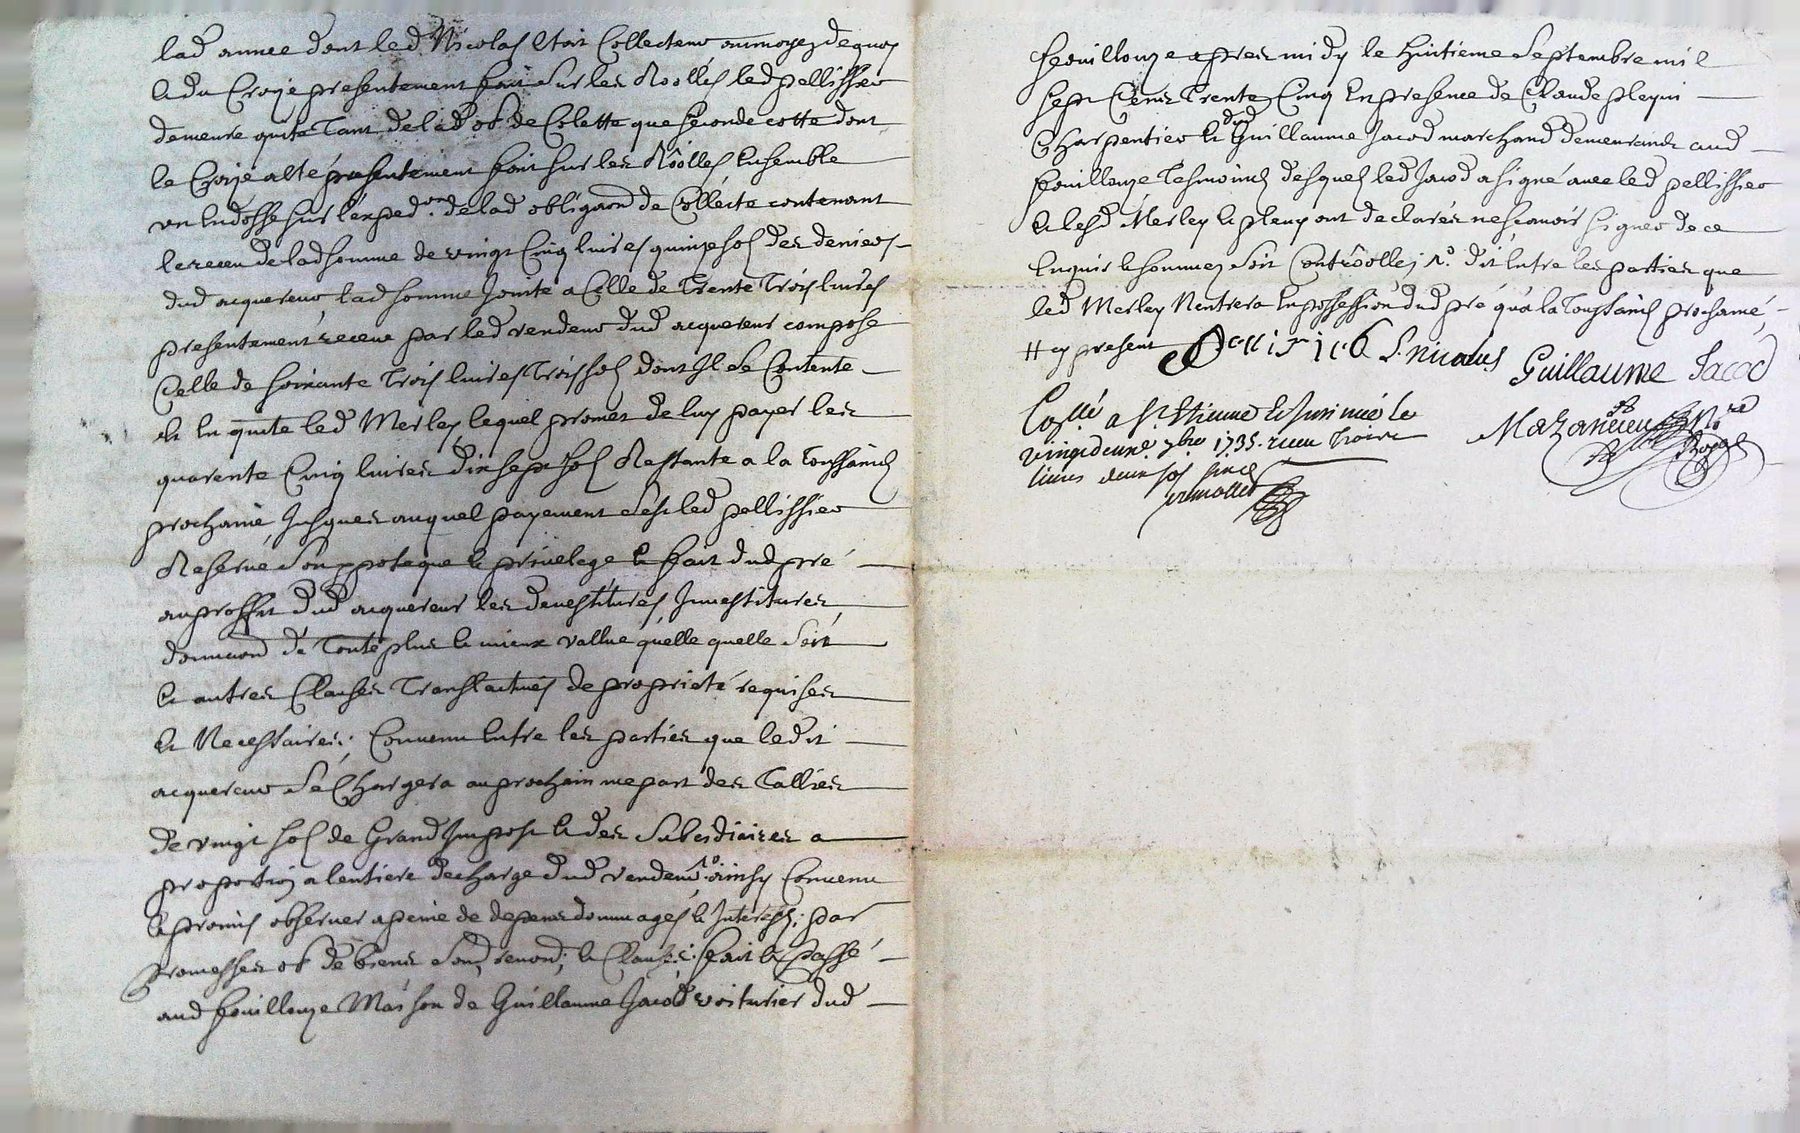 lad annee dont led Nicolas Etoit Collecteur aumoyen dequoy
et du Croisé presentement fait sur les Roolles led pellissier
demeure quite Tant de lad ob de Colette que seconde cotte dont
le Croisé a êté présentement fait sur les Rôolles Ensemble
un Endosse sur l'exped.on de lad obligaōn de Collécte contenant
le receu de lad somme de vingt Cinq livres quinze sols des deniers
dud acquereur, lad somme Jointe a Celle de Trente Trois livres
presentement receue par led vendeur dud acquereur compose
Celle de soixante Trois livres Trois sols dont Il se Contente
et En quite led Merley lequel promet de luy payer les
quarente Cinq livres dix sept sols Restante a la Toussaincts
prochaine, Jusques auquel payement s'est led pellissier
Reservé son ypoteque et privilege et fait dud pré
au proffit dud acquereur les devestitures Investitures
donnaōn de Toute plus et mieux vallue quelle quelle soit
et autres Clauses Translactives de proprieté requises
et Necessaires; Convenu Entre les parties que ledit
acquereur se Chargera au prochain mepart des Tallies
de vingt sols de Grand Impost et des subsidiaires a
proportion a lentiere décharge dud vendeur ainsy Convenu
et promis observer a peine de depens dommages et Interests; par
promesses ob de biens soud renond, et Clauses: fait et Passé
aud fouillouze Maison de Guillaume Jacod voiturier dud
fouillouze apres midy le huitieme Septembre mil
sept Cens Trente Cinq En presence de Claude pleyni
Charpentier et dud Guillaume Jacod marchand demeurants aud
fouillouze Tesmoincts desquels led Jacod a signé avec led pellissier
et lesd Merley et pleny ont declarés ne scavoir signer de ce
Enquis et sommez soit Contrôollé; dit Entre les parties que
led Merley N'entrera En possession dud pré qu'a la Toussaincts prochaine,
cy present S. nicolas Guillaume Jacod
Coллé a St Etienne
vingt deux 7bre 1735. receu Trois
livres deux sols
Mazancieu Nre
Royal